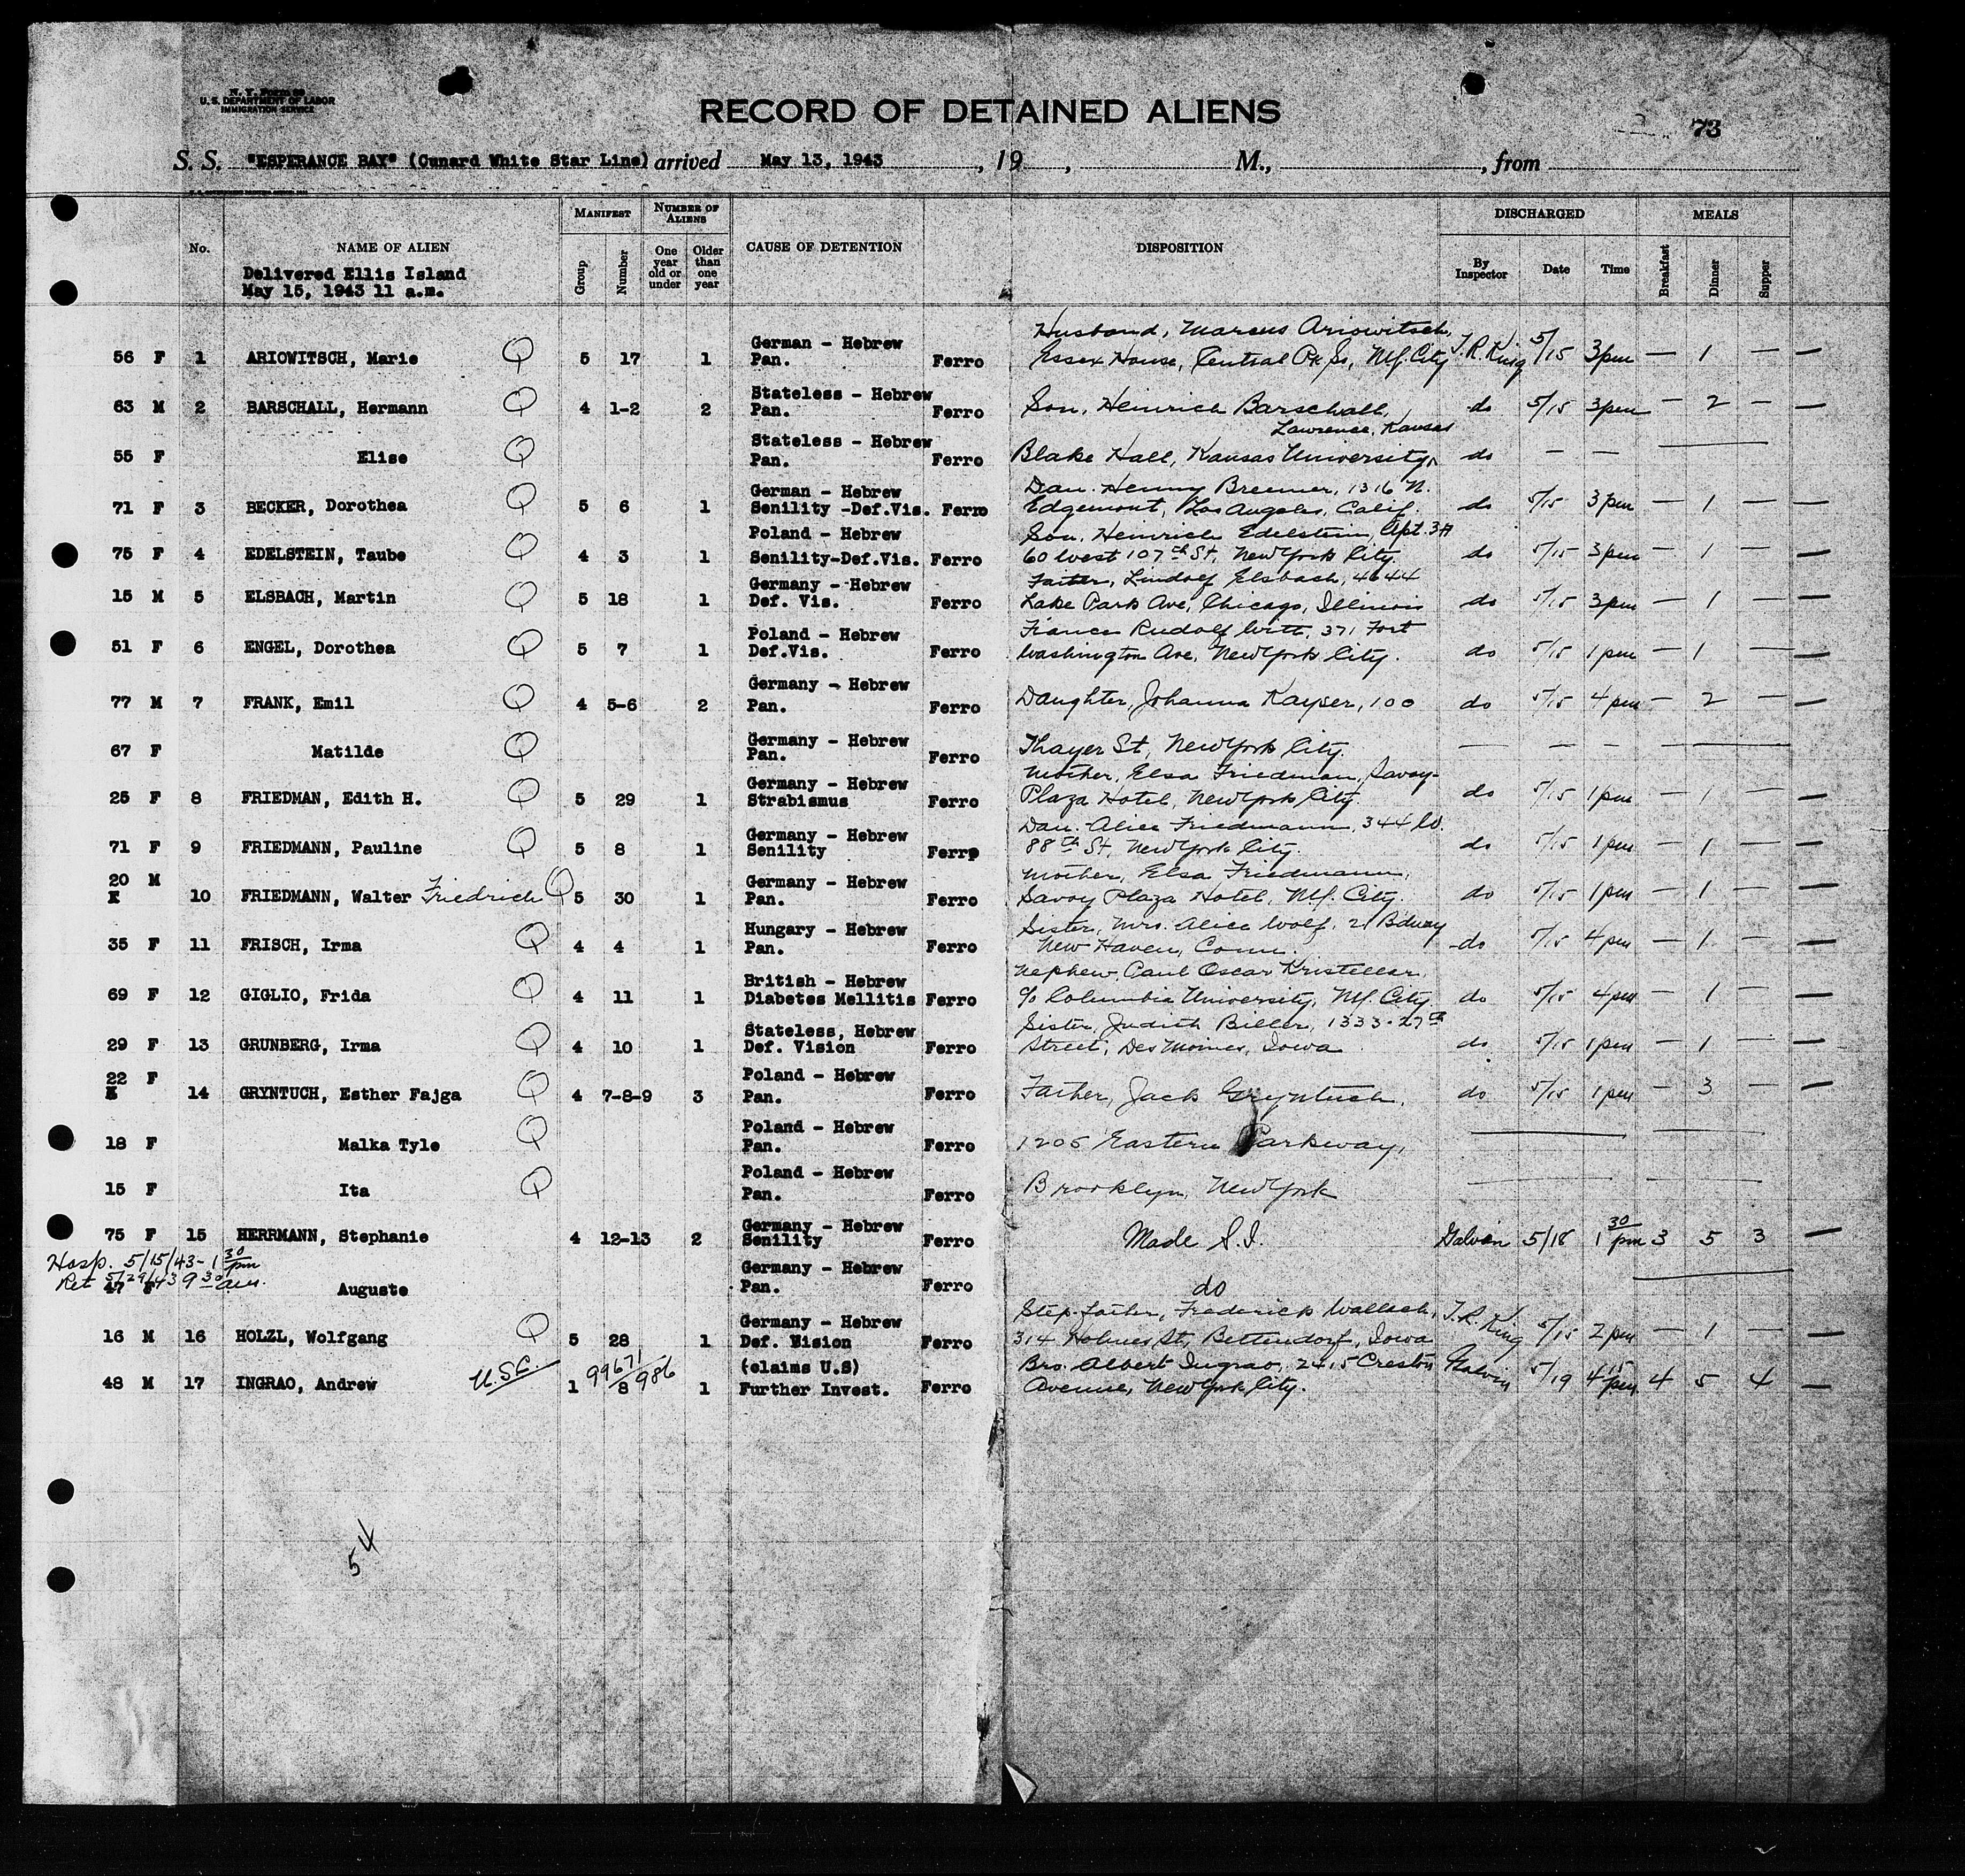 N. Y. Form 99
U. S. DEPARTMENT OF LABOR
IMMIGRATION SERVICE
RECORD OF DETAINED ALIENS
73
S. S. "ESPERANCE BAY" (Cunard White Star Line) arrived May 13, 1943, 19 , M., , from
No. NAME OF ALIEN MANIFEST Group Number NUMBER OF ALIENS One year old or under Older than one year CAUSE OF DETENTION DISPOSITION DISCHARGED By Inspector Date Time MEALS Breakfast Dinner Supper
Delivered Ellis Island
May 15, 1943 11 a.m.
German - Hebrew Husband, Marcus Ariowitsch,
56 F 1 ARIOWITSCH, Marie Q 5 17 1 Pan. Ferro Essex House, Central Pk So, N.Y. City T.R. King 5/15 3pm — 1 — —
Stateless - Hebrew
63 M 2 BARSCHALL, Hermann Q 4 1-2 2 Pan. Ferro Son, Heinrich Barschall, do 5/15 3pm — 2 — —
Lawrence, Kansas
Stateless - Hebrew
55 F Elise Q Pan. Ferro Blake Hall, Kansas University, do — —
German - Hebrew Dau. Henny Bremer, 1316 N.
71 F 3 BECKER, Dorothea Q 5 6 1 Senility -Def.Vis. Ferro Edgemont, Los Angeles, Calif. do 5/15 3pm — 1 — —
Poland - Hebrew Son, Heinrich Edelstein, Apt. 3A
75 F 4 EDELSTEIN, Taube Q 4 3 1 Senility-Def.Vis. Ferro 60 West 107th St, New York City. do 5/15 3pm — 1 — —
Germany - Hebrew Father, Lindolf Elsbach, 4644
15 M 5 ELSBACH, Martin Q 5 18 1 Def. Vis. Ferro Lake Park Ave, Chicago, Illinois do 5/15 3pm — 1 — —
Poland - Hebrew Fiance Rudolf Witt, 371 Fort
51 F 6 ENGEL, Dorothea Q 5 7 1 Def.Vis. Ferro Washington Ave, New York City. do 5/15 1pm — 1 — —
Germany - Hebrew
77 M 7 FRANK, Emil Q 4 5-6 2 Pan. Ferro Daughter, Johanna Kayser, 100 do 5/15 4pm — 2 — —
Germany - Hebrew
67 F Matilde Q Pan. Ferro Thayer St, New York City. — — — —
Germany - Hebrew Mother, Elsa Friedman, Savoy-
25 F 8 FRIEDMAN, Edith H. Q 5 29 1 Strabismus Ferro Plaza Hotel, New York City. do 5/15 1pm — 1 — —
Germany - Hebrew Dau. Alice Friedmann, 344 W.
71 F 9 FRIEDMANN, Pauline Q 5 8 1 Senility Ferro 88th St, New York City. do 5/15 1pm — 1 — —
20 M Germany - Hebrew Mother, Elsa Friedmann,
10 FRIEDMANN, Walter Friedrich Q 5 30 1 Pan. Ferro Savoy Plaza Hotel, N.Y. City. do 5/15 1pm — 1 — —
Hungary - Hebrew Sister, Mrs. Alice Wolf, 21 Bdway
35 F 11 FRISCH, Irma Q 4 4 1 Pan. Ferro New Haven, Conn. do 5/15 4pm — 1 — —
British - Hebrew Nephew Paul Oscar Kristeller,
69 F 12 GIGLIO, Frida Q 4 11 1 Diabetes Mellitis Ferro c/o Columbia University, N.Y. City do 5/15 4pm — 1 — —
Stateless, Hebrew Sister, Judith Biller, 1333-27th
29 F 13 GRUNBERG, Irma Q 4 10 1 Def. Vision Ferro Street, Des Moines, Iowa do 5/15 1pm — 1 — —
22 F Poland - Hebrew
14 GRYNTUCH, Esther Fajga Q 4 7-8-9 3 Pan. Ferro Father, Jack Gryntuch, do 5/15 1pm — 3 — —
Poland - Hebrew
18 F Malka Tyle Q Pan. Ferro 1205 Eastern Parkway,
Poland - Hebrew
15 F Ita Q Pan. Ferro Brooklyn, New York
Germany - Hebrew
75 F 15 HERRMANN, Stephanie 4 12-13 2 Senility Ferro Made S.I. Galvin 5/18 1 30 pm 3 5 3 —
Hosp. 5/15/43 - 1 30 pm
Ret 5/29/43 9 30 am.
Germany - Hebrew
47 F Auguste Pan. Ferro do
Germany - Hebrew Step-father, Frederick Wallach,
16 M 16 HOLZL, Wolfgang Q 5 28 1 Def. Vision Ferro 314 Holmes St, Bettendorf, Iowa T.R. King 5/15 2pm — 1 — —
U.S.C. 99671/986 (claims U.S) Bro. Albert Ingrao, 2415 Creston
48 M 17 INGRAO, Andrew 1 8 1 Further Invest. Ferro Avenue, New York City. Galvin 5/19 4 15 pm 4 5 4 —
54